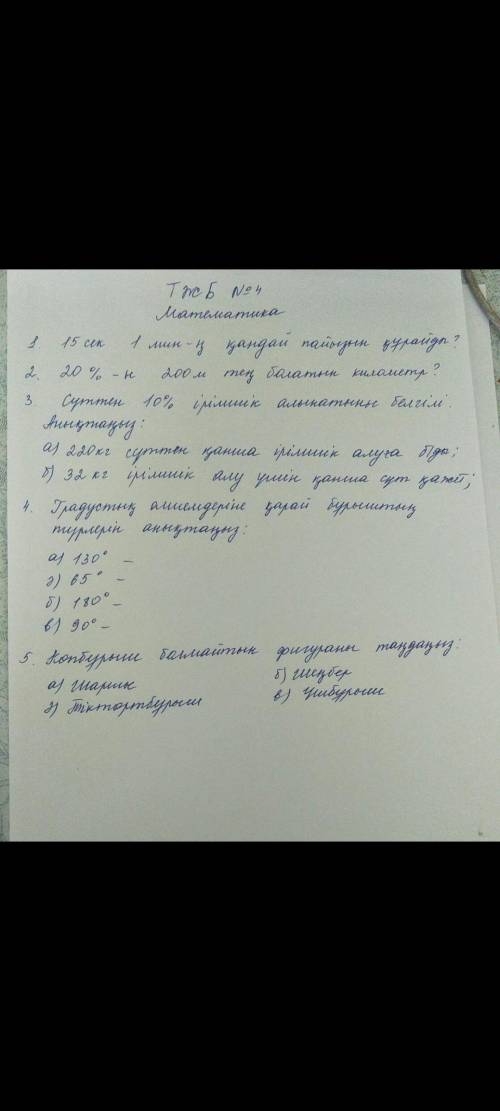 ТЖБ №4
Математика
1. 15 сек 1 мин-ң қандай пайызын құрайды?
2. 20% -ы 200 м тең болатын километр?
3 Сүттен 10% ірімшік алынатыны белгілі.
Анықтаңыз:
а) 220 кг сүттен қанша ірімшік алуға б/ды;
б) 32 кг ірімшік алу үшін қанша сүт қажет;
4. Градустық өлшемдеріне қарай бұрыштың
түрлерін анықтаңыз:
а) 130° –
ә) 65° –
б) 180° –
в) 90° –
5. Көпбұрыш болмайтын фигураны таңдаңыз:
а) Шаршы б) Шеңбер
ә) Тіктөртбұрыш в) Үшбұрыш